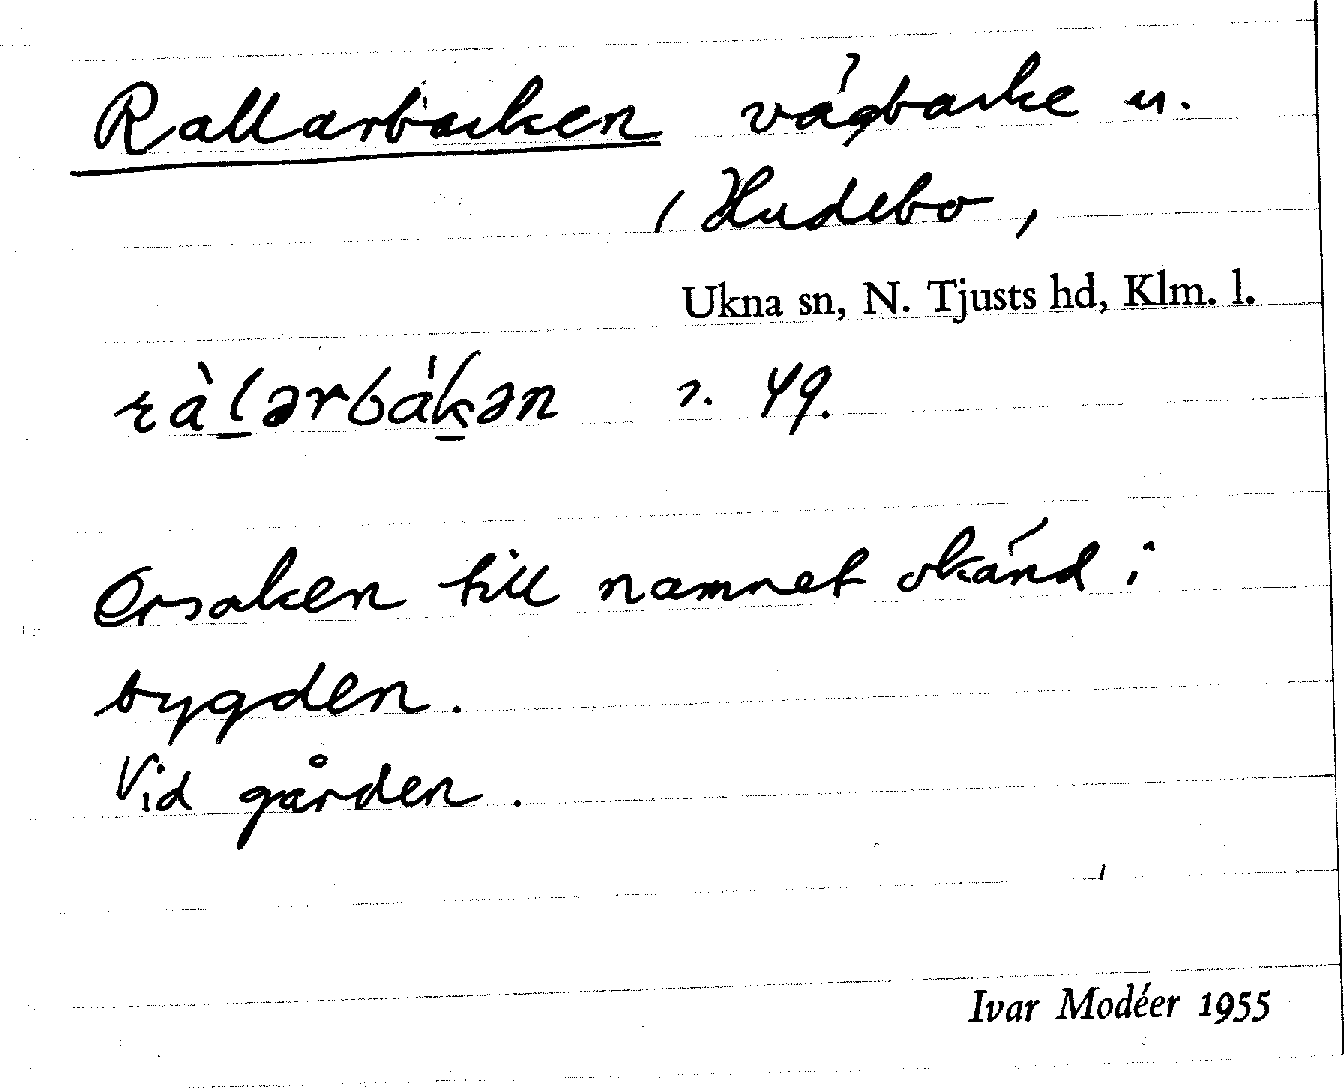 Rallarbacken vägbacke u.
i Hudebo,
Ukna sn, N. Tjusts hd, Klm. l.
49.
Orsaken till namnet okänd i
bygden.
Vid gården.
Ivar Modéer 1955